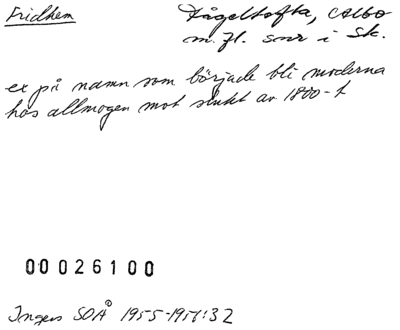 Fridhem
Fågeltofta, Albo
m. fl. snr i Sk.
ex på namn som började bli moderna
hos allmogen mot slutet av 1800-t
00026100
Ingers SOÅ 1955-1957:32